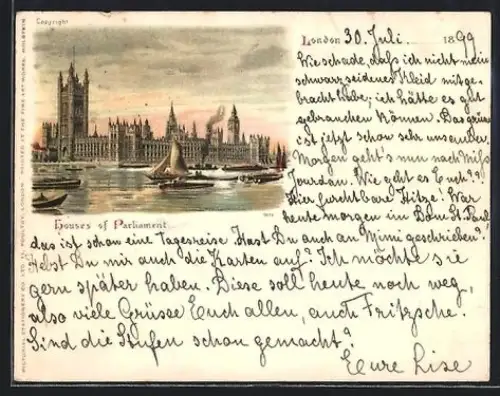 Copyright
London 30. Juli 1899
Wie schade, dass ich nicht mein
schwarzseidenes Kleid mitge-
bracht habe; ich hätte es gut
gebrauchen können. Das grüne
ist jetzt schon sehr unsauber.
Morgen geht's nun nach Miss
Jourdan. Wie geht es Euch??
Hier furchtbare Hitze! War
heute morgen in St. Paul
Houses of Parliament.
das ist schon eine Tagesreise. Hast Du auch an Mimi geschrieben?
Hebst Du mir auch die Karten auf? Ich möchte sie
gern später haben. Diese soll heute noch weg,
also viele Grüsse Euch allen, auch Fritzsche.
Sind die Stufen schon gemacht?
Eure Lise
PICTORIAL STATIONERY CO. LTD. POULTRY, LONDON. PRINTED AT THE FINE ART WORKS, HOLSTEIN